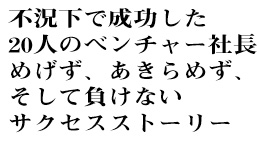 不況下で成功した
20人のベンチャー社長
めげず、あきらめず、
そして負けない
サクセスストーリー